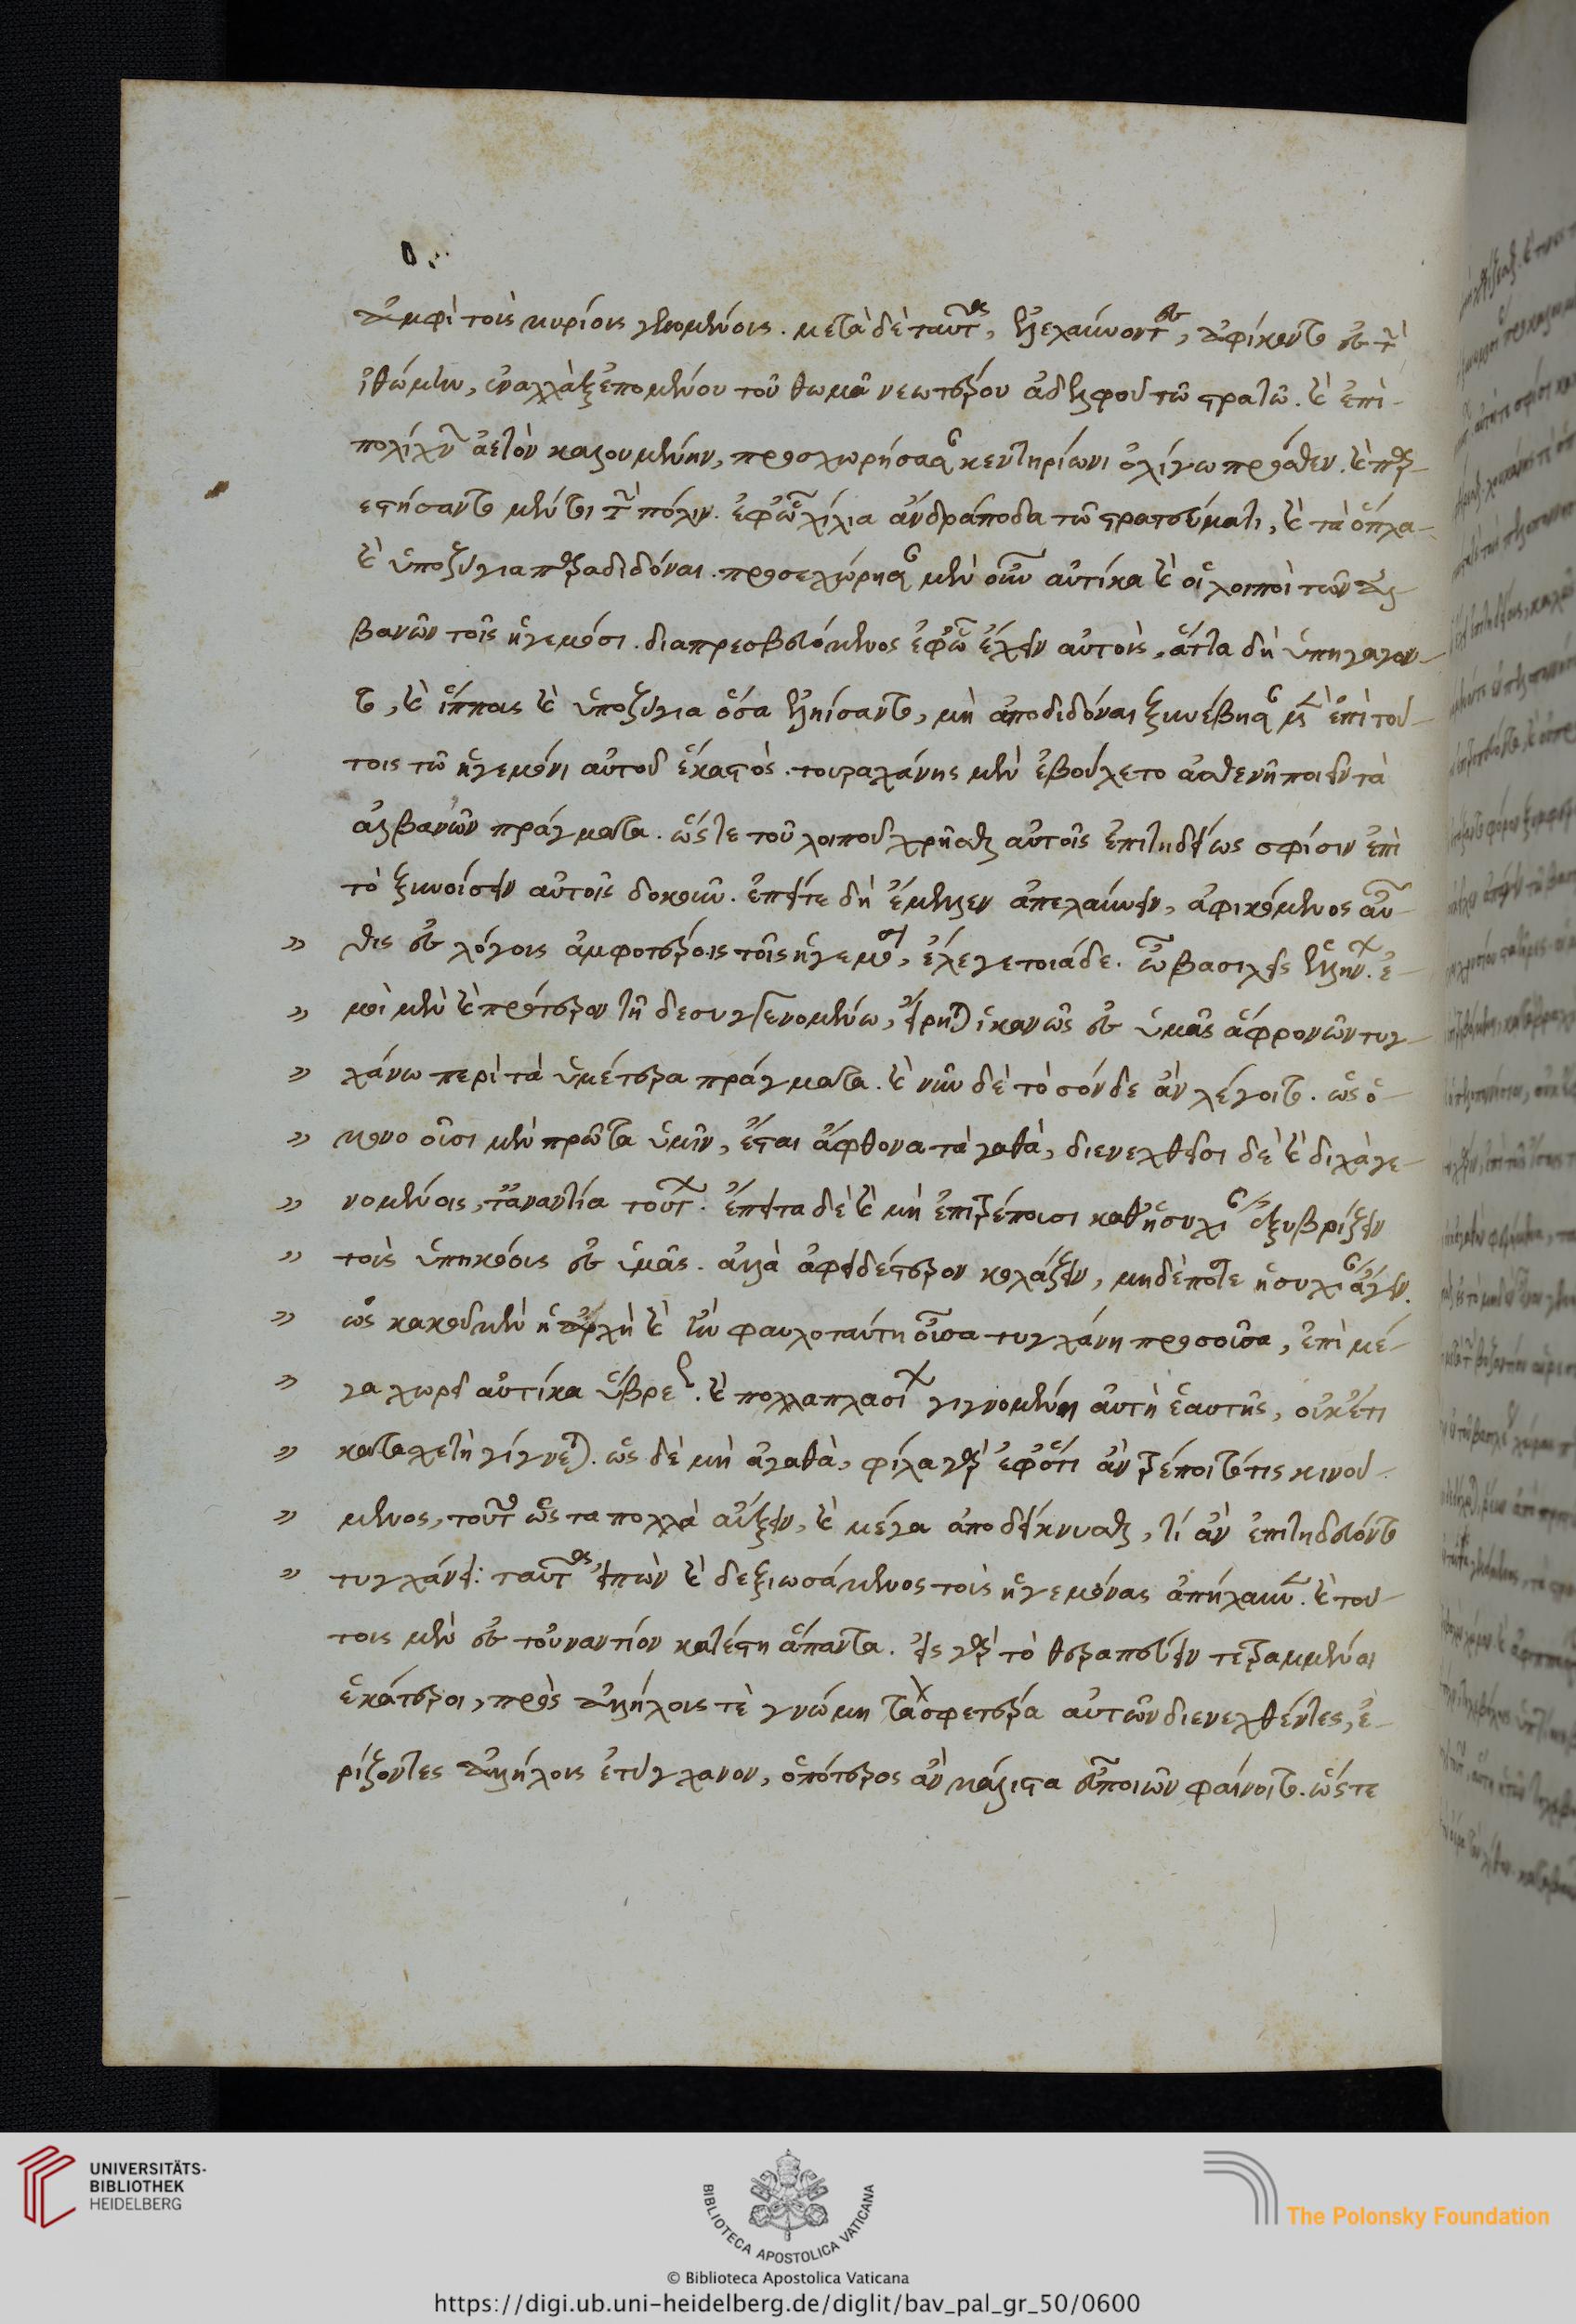 ἀμφὶ τοὺς κυρίους γενομένοις. μετὰ δὲ ταῦτα, ἐξελαύνοντες, ἀφίκοντο ἐς τὴν
ἰθώμην, ἐναλλὰξ ἑπομένου τοῦ θωμᾶ νεωτέρου ἀδελφοῦ τῶ στρατῶ. καὶ ἐπὶ
πολίχνην ἀετὸν καλουμένην, προσχωρήσασαν κεντηρίωνι ὀλίγω πρόσθεν. καὶ παρ
εστήσαντο μέντοι τὴν πόλιν. ἐφ' ὧ χίλια ἀνδράποδα τῶ στρατεύματι, καὶ τὰ ὅπλα
καὶ ὑποζύγια παραδιδόναι. προσεχώρησαν μὲν οὖν αὐτίκα καὶ οἱ λοιποὶ τῶν ἀλ
βανῶν τοῖς ἡγεμόσι. διαπρεσβευόμενος ἐφ' ὧ ἔχειν αὐτοὺς, ἅττα δὴ ὑπηγάγον
το, καὶ ἵππους καὶ ὑποζύγια ὅσα ἐληίσαντο, μὴ ἀποδιδόναι ξυνέβησαν μὲν ἐπὶ τού
τοις τῶ ἡγεμόνι αὐτοῦ ἕκαστος. τουραχάνης μὲν ἐβούλετο ἀσθενῆ ποιεῖν τὰ
ἀλβανῶν πράγματα. ὥστε τοῦ λοιποῦ χρῆσθαι αὐτοῖς ἐπιτηδείως σφίσιν ἐπὶ
τὸ ξυνοίσειν αὐτοῖς δοκοῦν. ἐπείτε δὴ ἔμελλεν ἀπελαύνειν, ἀφικόμενος αὖ
" θις ἐς λόγους ἀμφοτέροις τοῖς ἡγεμόσι, ἔλεγε τοιάδε. ὦ βασιλεῖς ἑλλήνων. ἐ
" μοὶ μὲν καὶ πρότερον τῆ δε συγγενομένω, εἴρηται ἱκανῶς ἐς ὑμᾶς ἃ φρονῶν τυγ
" χάνω περὶ τὰ ὑμέτερα πράγματα. καὶ νῦν δὲ τοσόνδε ἂν λέγοιτο. ὡς ὁ
" μονοοῦσι μὲν πρῶτα ὑμῖν, ἔσται ἄφθονα τἀγαθά, διενεχθεῖσι δὲ καὶ δίχα γε
" νομένοις, τἀναντία τούτων. ἔπειτα δὲ καὶ μὴ ἐπιτρέπουσι καθ' ἡσυχίαν ἐξυβρίζειν
" τοὺς ὑπηκόους ἐς ὑμᾶς. ἀλλὰ ἀφειδέστερον κολάζειν, μηδέποτε ἡσυχίαν ἄγειν.
" ὡς κακοῦ μὲν ἡ ἀρχὴ καὶ ἢν φαυλοτάτη οὖσα τυγχάνη προσοῦσα, ἐπὶ μέ
" γα χωρεῖ αὐτίκα ὕβρεως. καὶ πολλαπλασίων γιγνομένη αὐτὴ ἑαυτῆς, οὐκέτι
" κατασχετὴ γίγνεται. ὡς δὲ μὴ ἀγαθὰ, φίλα γὰρ ἐφ' ὅτι ἂν τρέποιτό τις κινού
" μενος, τοῦτο ὥς τα πολλὰ αὔξειν, καὶ μέγα ἀποδείκνυσθαι, τί ἂν ἐπιτηδεύοντο
" τυγχάνει: ταῦτα εἰπὼν καὶ δεξιωσάμενος τοὺς ἡγεμόνας ἀπήλαυνεν. καὶ τού
τοις μὲν ἐς τοὐναντίον κατέστη ἅπαντα. εἰς γὰρ τὸ θεραπεύειν τετραμμένοι
ἑκάτεροι, πρὸς ἀλλήλους τὲ γνώμη τὰ σφέτερα αὐτῶν διενεχθέντες, ἐ
ρίζοντες ἀλλήλοις ἐτύγχανον, ὁπότερος ἂν μάλιστα εὖ ποιῶν φαίνοιτο. ὥστε
UNIVERSITÄTS-
BIBLIOTHEK
HEIDELBERG
BIBLIOTECA APOSTOLICA VATICANA
The Polonsky Foundation
© Biblioteca Apostolica Vaticana
https://digi.ub.uni-heidelberg.de/diglit/bav_pal_gr_50/0600